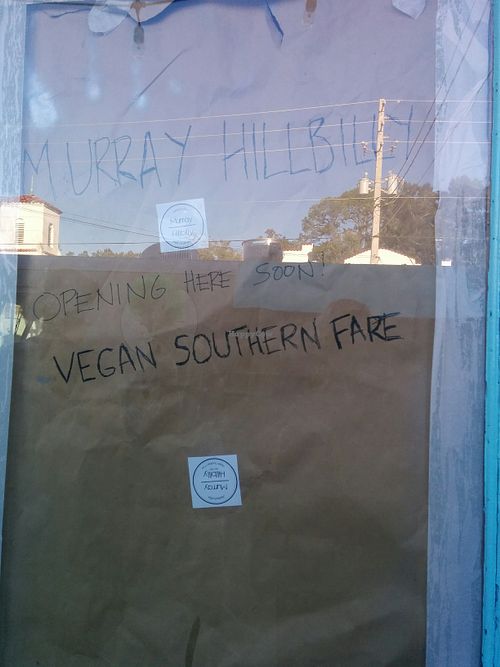 MURRAY HILLBILLY
Murray
Hillbilly
OPENING HERE SOON!
VEGAN SOUTHERN FARE
Murray
Hillbilly